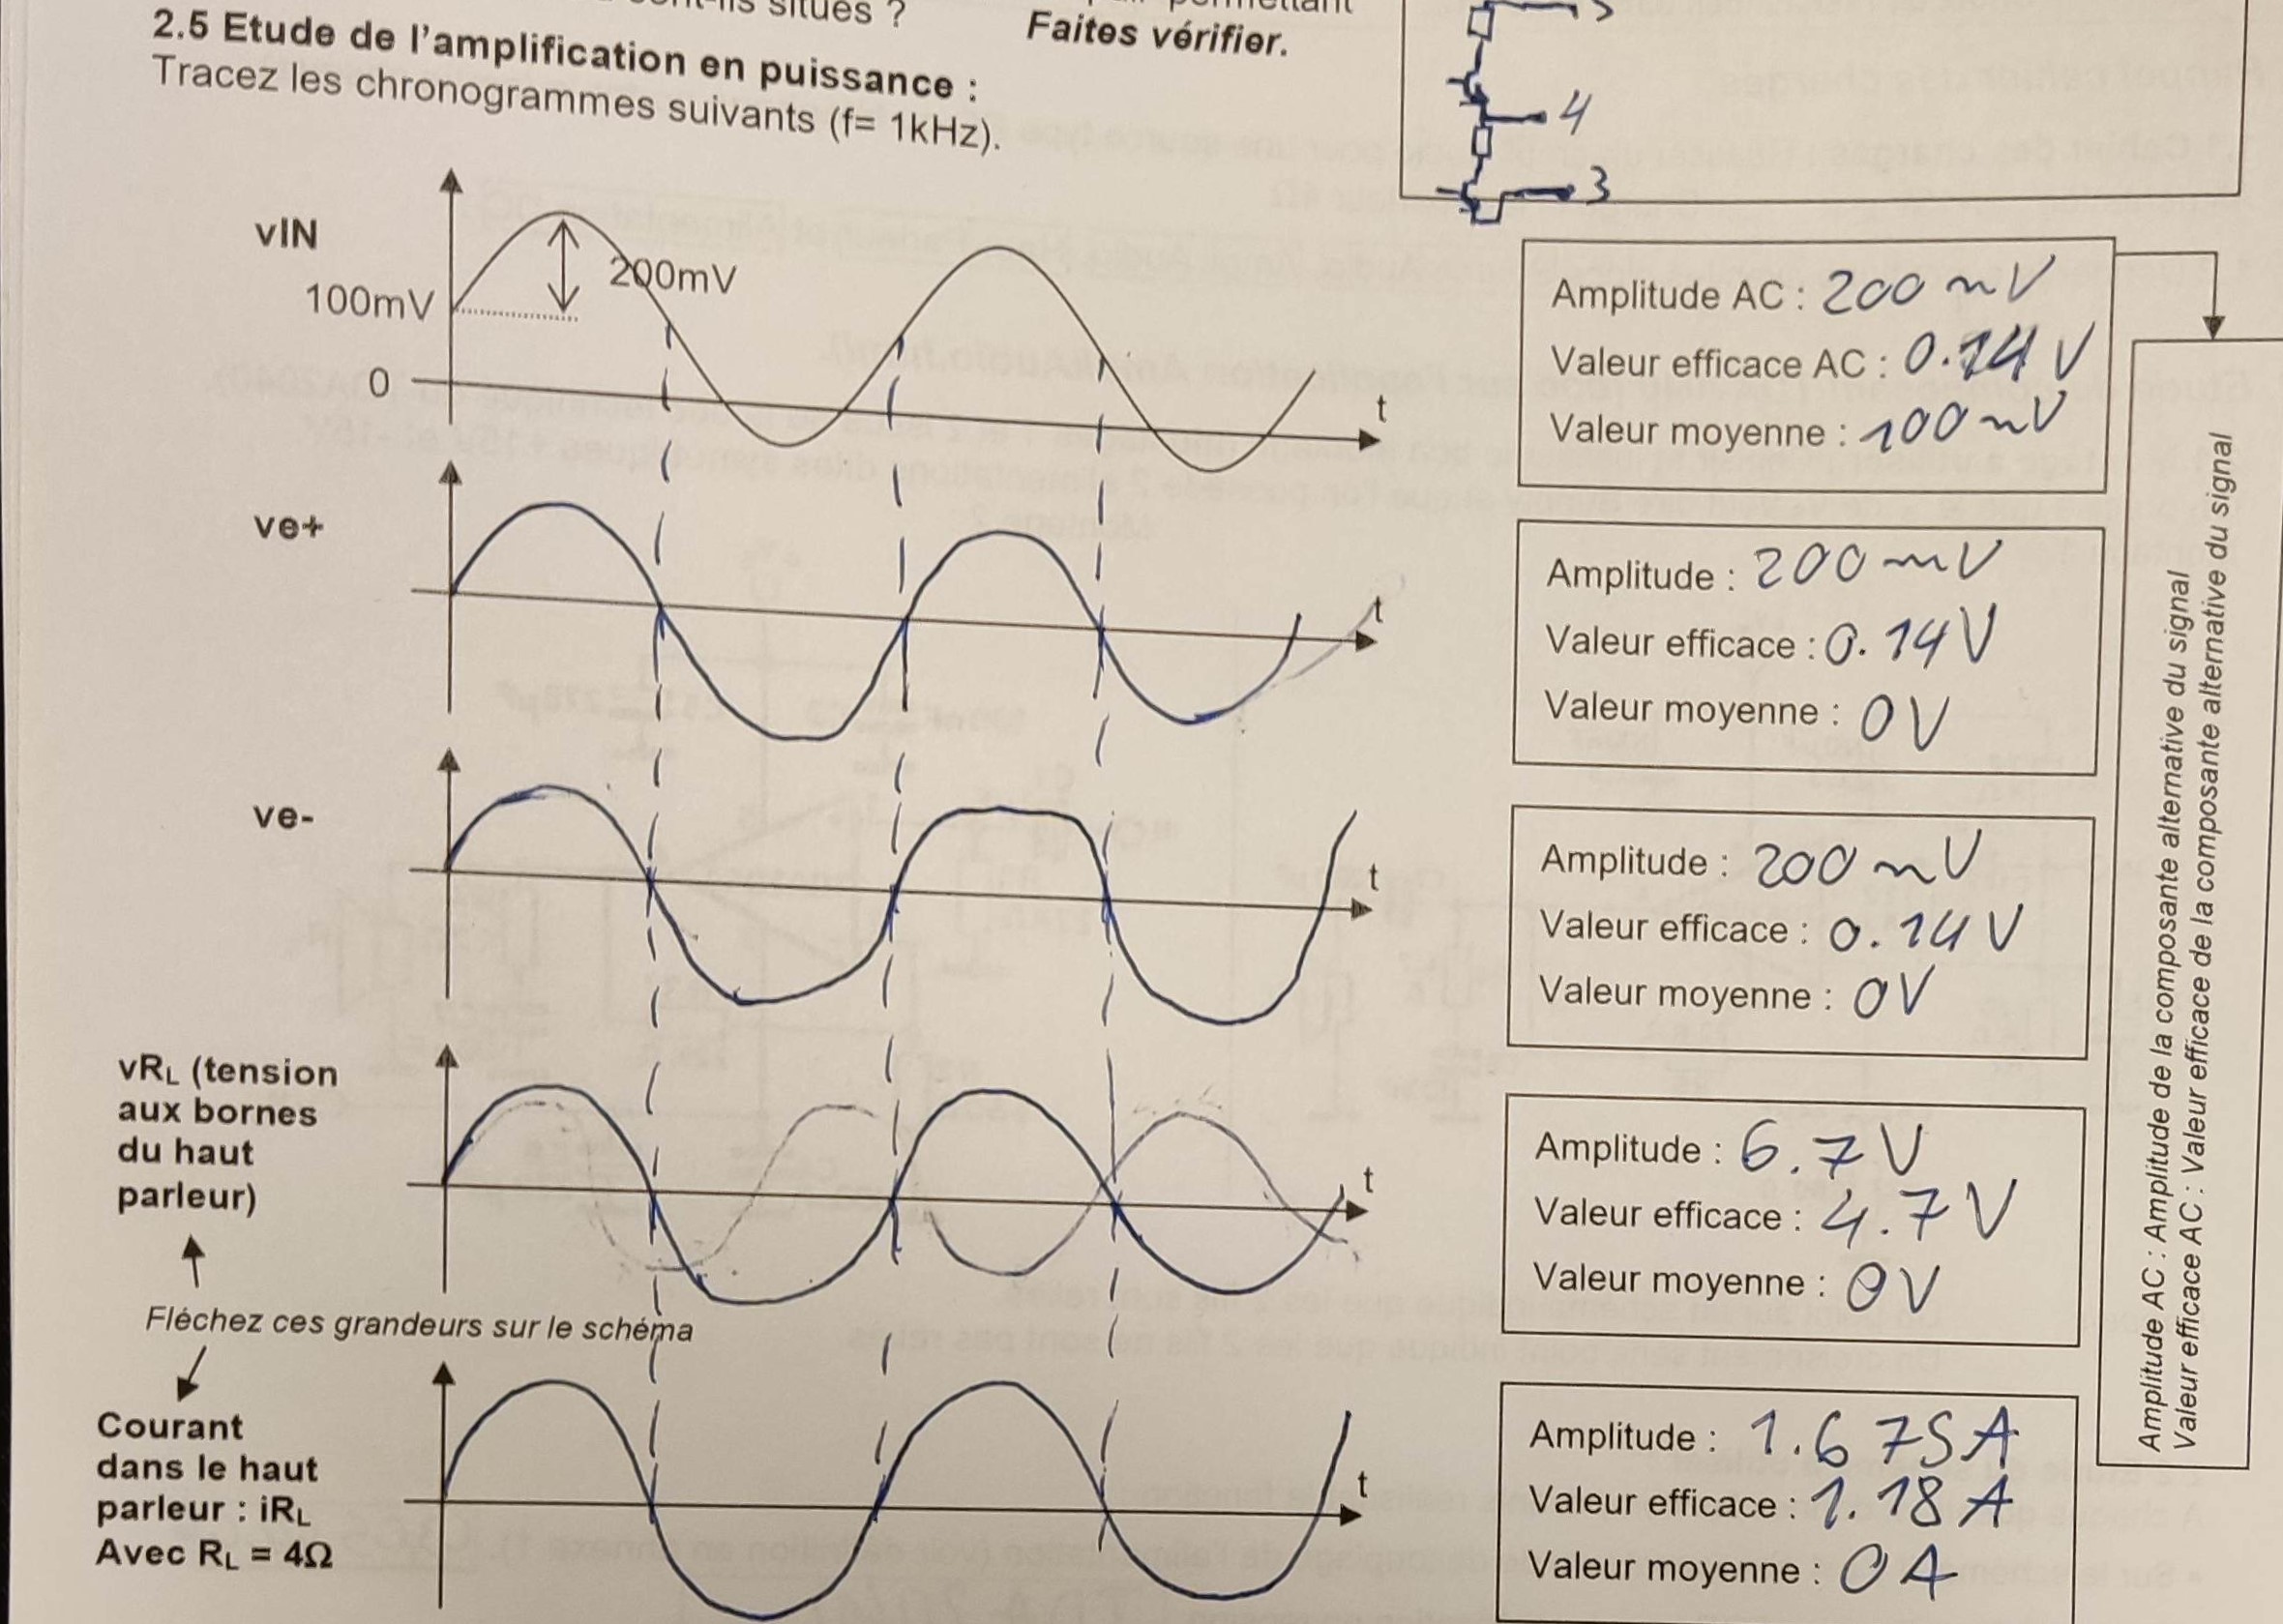 situés ?
Faites vérifier.
2.5 Etude de l'amplification en puissance :
Tracez les chronogrammes suivants (f= 1kHz).
4
3
vIN
200mV
100mV
0
t
Amplitude AC : 200 mV
Valeur efficace AC : 0.14 V
Valeur moyenne : 100 mV
ve+
t
Amplitude : 200 mV
Valeur efficace : 0.14 V
Valeur moyenne : 0V
ve-
t
Amplitude : 200 mV
Valeur efficace : 0.14 V
Valeur moyenne : 0V
vRL (tension
aux bornes
du haut
parleur)
t
Amplitude : 6.7 V
Valeur efficace : 4.7 V
Valeur moyenne : 0V
Fléchez ces grandeurs sur le schéma
Courant
dans le haut
parleur : iRL
Avec RL = 4Ω
t
Amplitude : 1.675A
Valeur efficace : 1.18 A
Valeur moyenne : 0 A
Amplitude AC : Amplitude de la composante alternative du signal
Valeur efficace AC : Valeur efficace de la composante alternative du signal